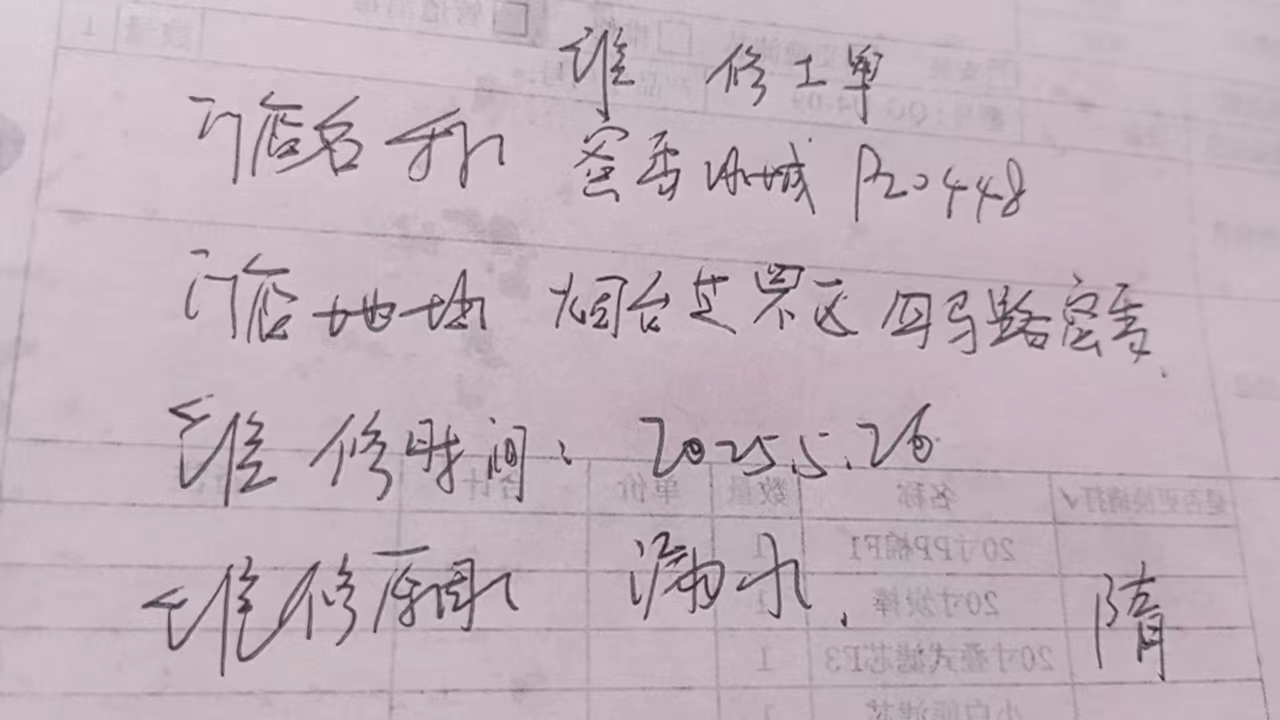 维修工单
门店名称 蜜雪冰城 P20448
门店地址 烟台芝罘区四马路蜜雪.
维修时间: 2025.5.26
维修原因: 漏水. 隋
数量 1
是否更换请打√ 名称 数量 单价 合计
20寸PP棉F1 1
20寸炭棒 1
20寸叠式滤芯F3 1